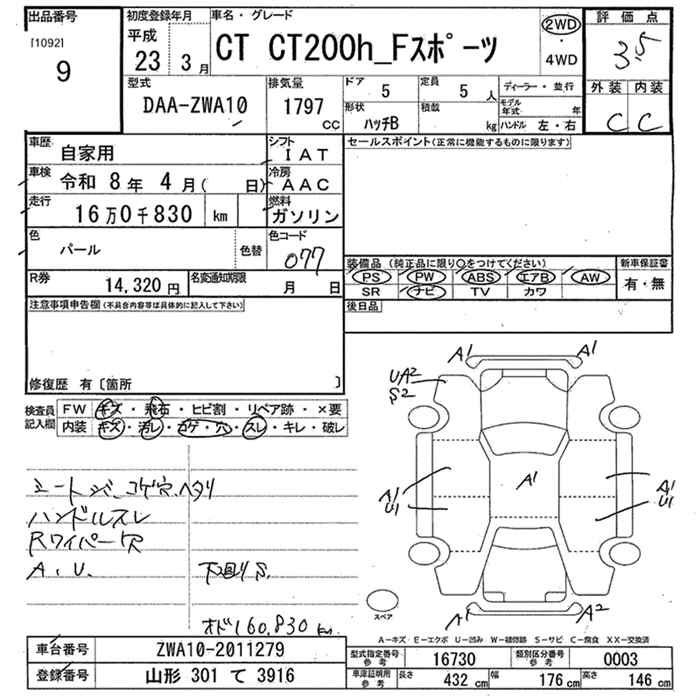 出品番号
[1092]
9
初度登録年月
平成
23 3月
車名・グレード
CT CT200h_Fスポーツ
2WD
・
4WD
評価点
3.5
外装 内装
C C
型式
DAA-ZWA10
排気量
1797
CC
ドア
5
定員
5人
形状
ハッチB
積載
kg
ディーラー・並行
モデル年式 年
ハンドル 左・右
車歴
自家用
シフト
IAT
車検
令和 8年 4月( 日)
冷房
AAC
走行
16万0千830 km
燃料
ガソリン
色
パール
色替
色コード
077
R券
14,320円
名変通知期限
月 日
セールスポイント(正常に機能するものに限ります)
装備品(純正品に限り○をつけてください)
PS PW ABS エアB AW
SR ナビ TV カワ
新車保証書
有・無
後日品
注意事項申告欄(不具合内容等は具体的に記入して下さい)
修復歴 有〔箇所 〕
検査員
記入欄
FW キズ・飛石・ヒビ割・リペア跡・×要
内装 キズ・汚レ・コゲ・穴・スレ・キレ・破レ
コゲ穴 ヘタリ
ハンドルスレ
Rワイパー欠
A.U.
下廻りS
オド160,830km
A1 A1
UA2
S2
A1
A1
U1
A1
U1
A1 A2
スペア
A-キズ E-エクボ U-凹み W-補修跡 S-サビ C-腐食 XX-交換済
車台番号
ZWA10-2011279
登録番号
山形 301 て 3916
型式指定番号
参考
16730
類別区分番号
参考
0003
車庫証明用
参考
長さ 432 cm 幅 176 cm 高さ 146 cm